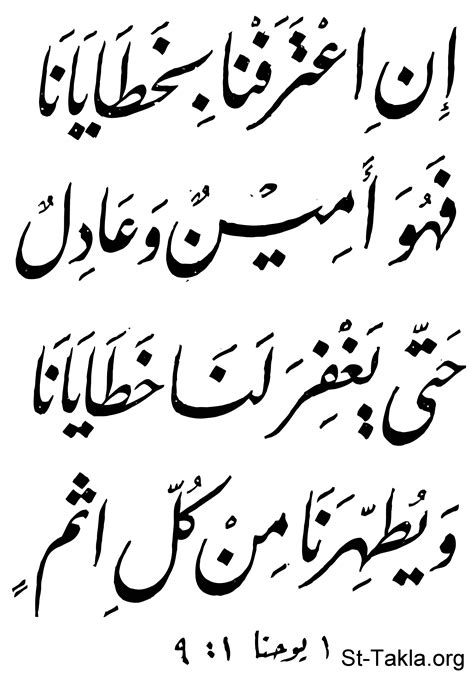 إِنِ اعْتَرَفْنَا بِخَطَايَانَا
فَهُوَ أَمِيْنٌ وَعَادِلٌ
حَتّى يَغْفِرَ لَنَا خَطَايَانَا
وَيُطَهِّرَنَا مِنْ كُلِّ اِثمٍ
١ يوحنا ١: ٩
St-Takla.org